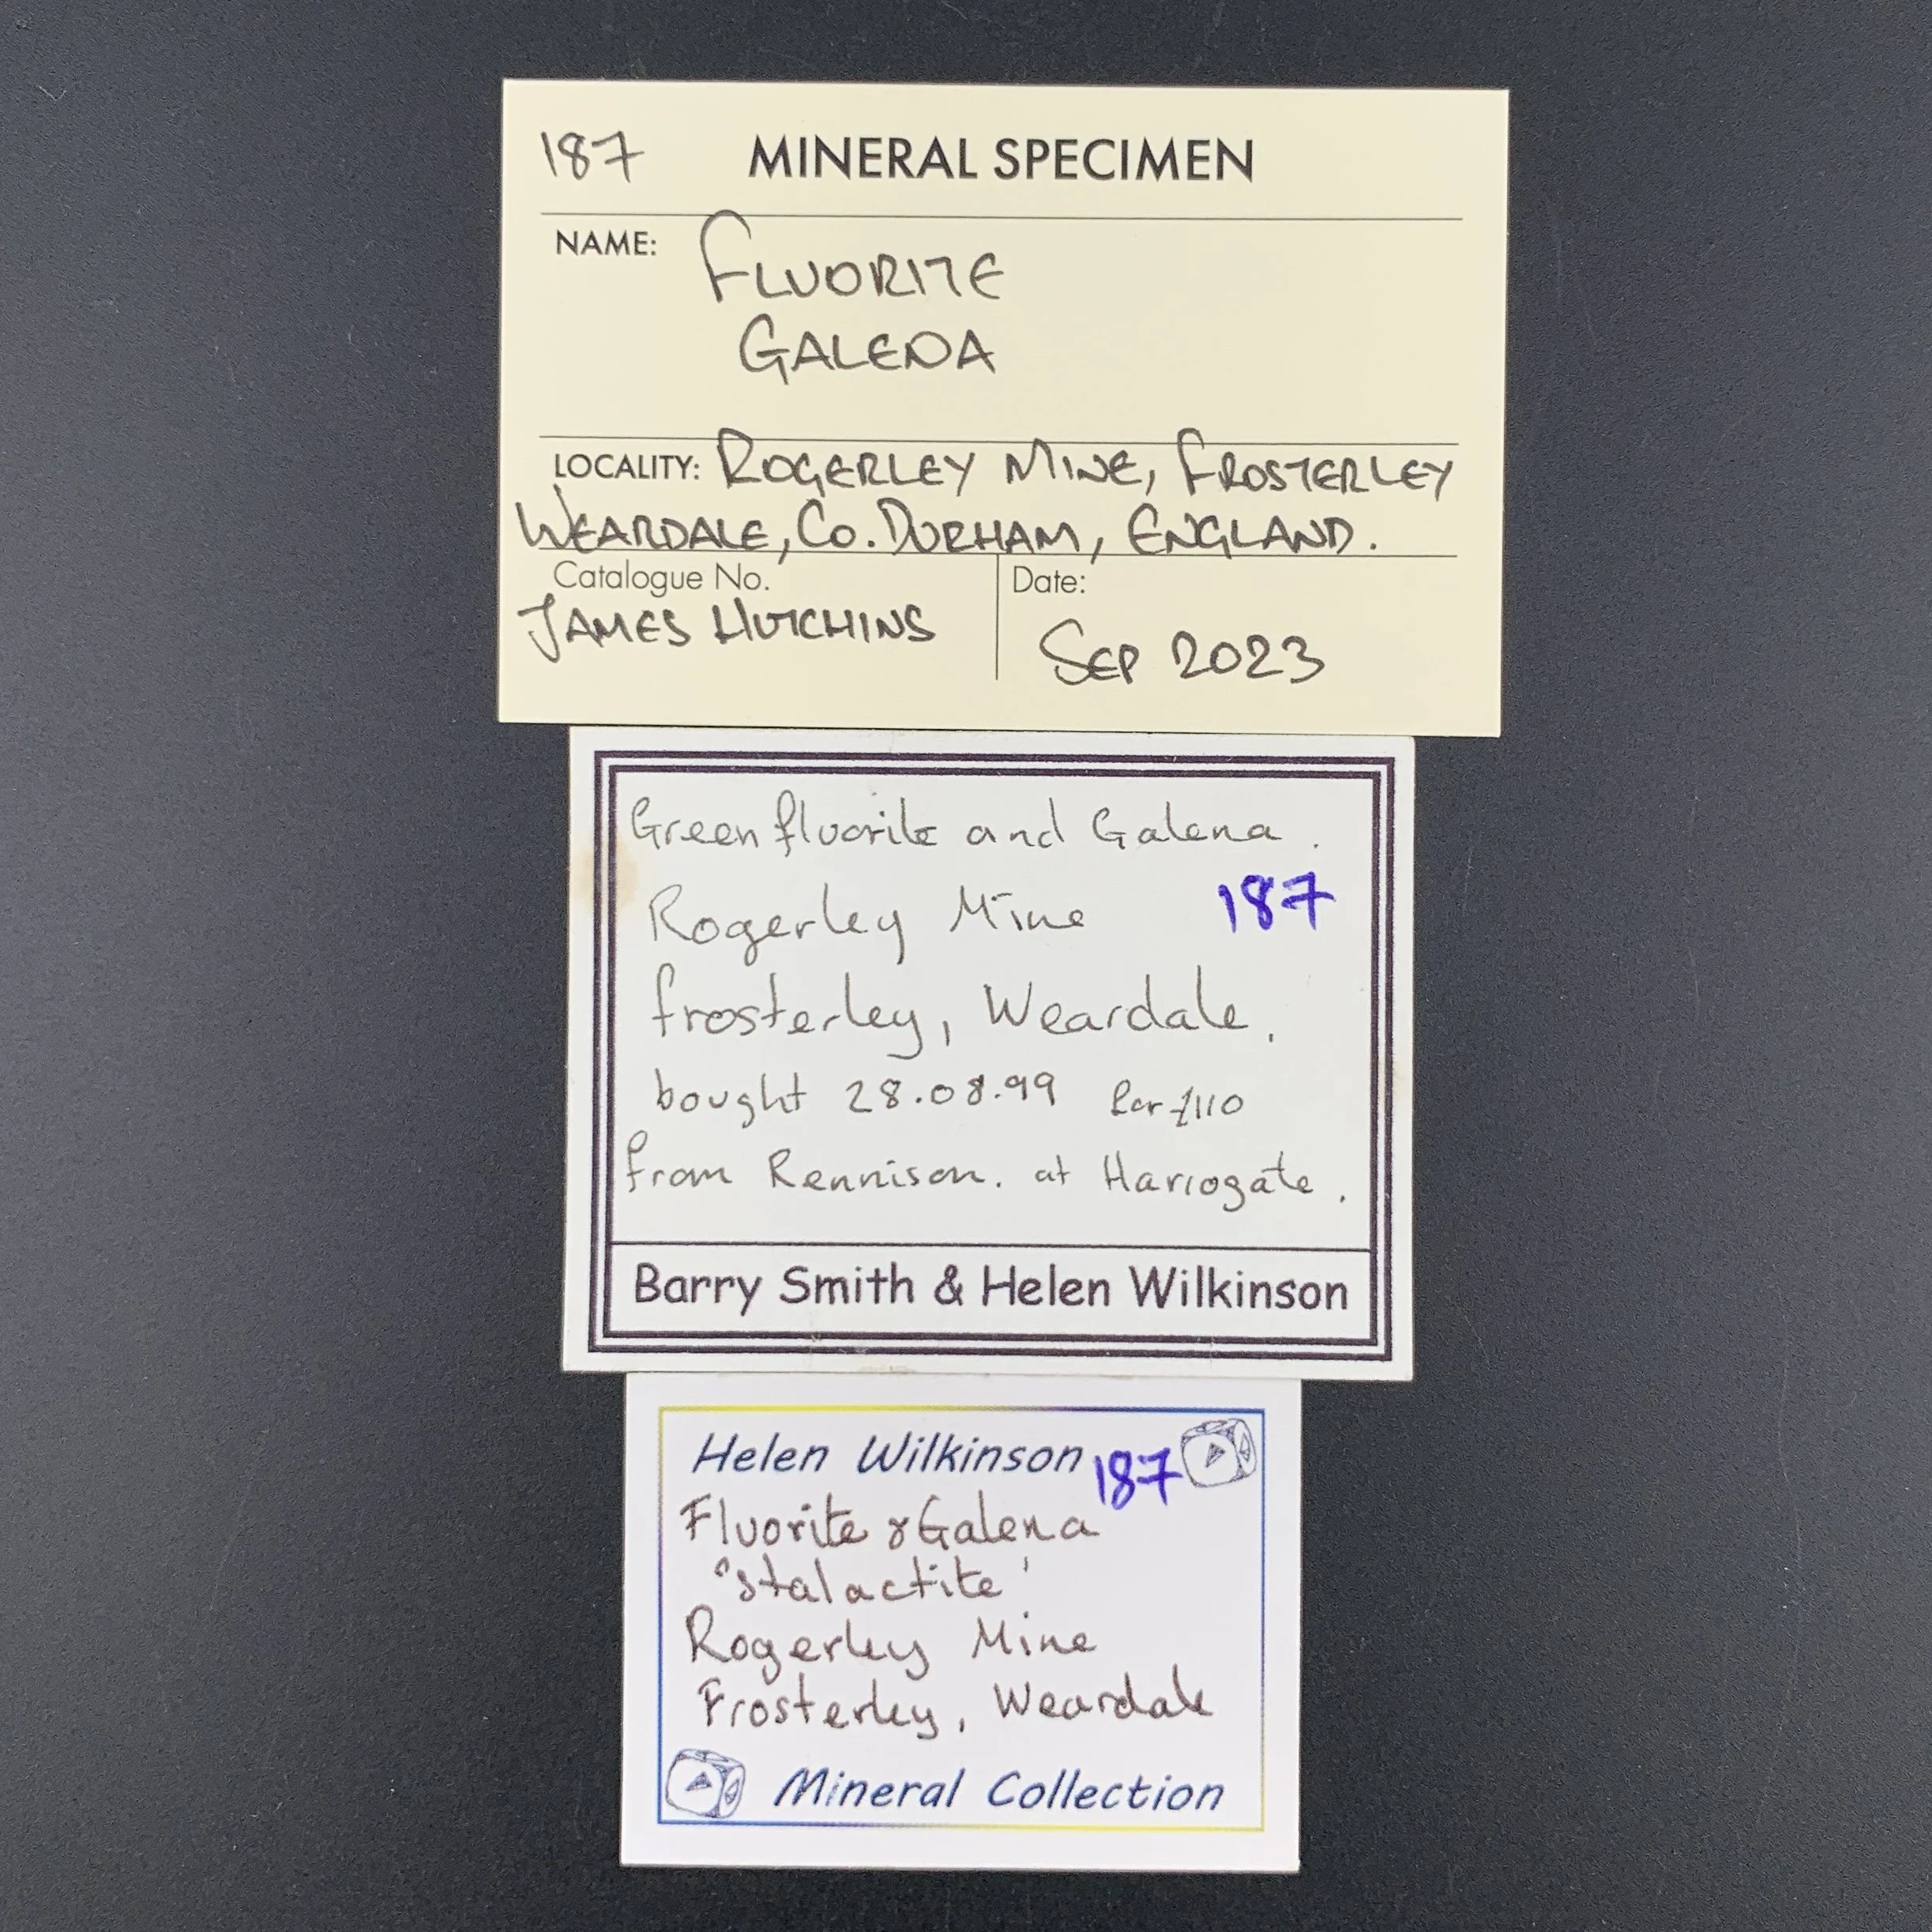 187 MINERAL SPECIMEN
NAME: FLUORITE
GALENA
LOCALITY: ROGERLEY MINE, FROSTERLEY
WEARDALE, CO. DURHAM, ENGLAND.
Catalogue No. Date:
JAMES HUTCHINS SEP 2023
Green fluorite and Galena.
Rogerley Mine 187
frosterley, Weardale.
bought 28.08.99 for £110
from Rennison. at Harrogate.
Barry Smith & Helen Wilkinson
Helen Wilkinson 187
Fluorite & Galena
'stalactite'
Rogerley Mine
Frosterley, Weardale
Mineral Collection